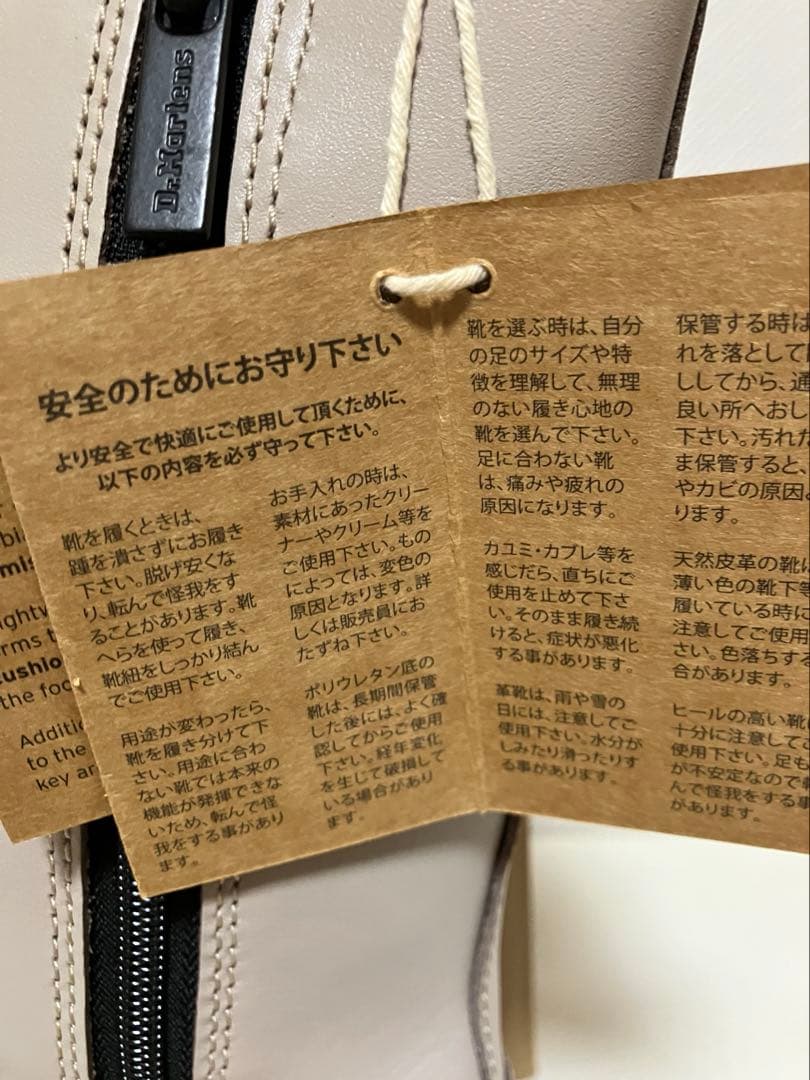 Dr.Martens
安全のためにお守り下さい
より安全で快適にご使用して頂くために、
以下の内容を必ず守って下さい。
靴を履くときは、
踵を潰さずにお履き
下さい。脱げ安くな
り、転んで怪我をす
ることがあります。靴
べらを使って履き、
靴紐をしっかり結ん
でご使用下さい。
用途が変わったら、
靴を履き分けて下
さい。用途に合わ
ない靴では本来の
機能が発揮できな
いため、転んで怪
我をする事があり
ます。
お手入れの時は、
素材にあったクリー
ナーやクリーム等を
ご使用下さい。もの
によっては、変色の
原因となります。詳
しくは販売員にお
たずね下さい。
ポリウレタン底の
靴は、長期間保管
した後には、よく確
認してからご使用
下さい。経年変化
を生じて破損して
いる場合があり
ます。
靴を選ぶ時は、自分
の足のサイズや特
徴を理解して、無理
のない履き心地の
靴を選んで下さい。
足に合わない靴
は、痛みや疲れの
原因になります。
カユミ・カブレ等を
感じだら、直ちにご
使用を止めて下さ
い。そのまま履き続
けると、症状が悪化
する事があります。
革靴は、雨や雪の
日には、注意してご
使用下さい。水分が
しみたり滑ったりす
る事があります。
保管する時は
れを落として
ししてから、通
良い所へおし
下さい。汚れた
ま保管すると、
やカビの原因と
ります。
天然皮革の靴は
薄い色の靴下等
履いている時に
注意してご使用
さい。色落ちする
合があります。
ヒールの高い靴は
十分に注意してご
使用下さい。足も
が不安定なので転
んで怪我をする事
があります。
the foo
Additio
to the
key ar